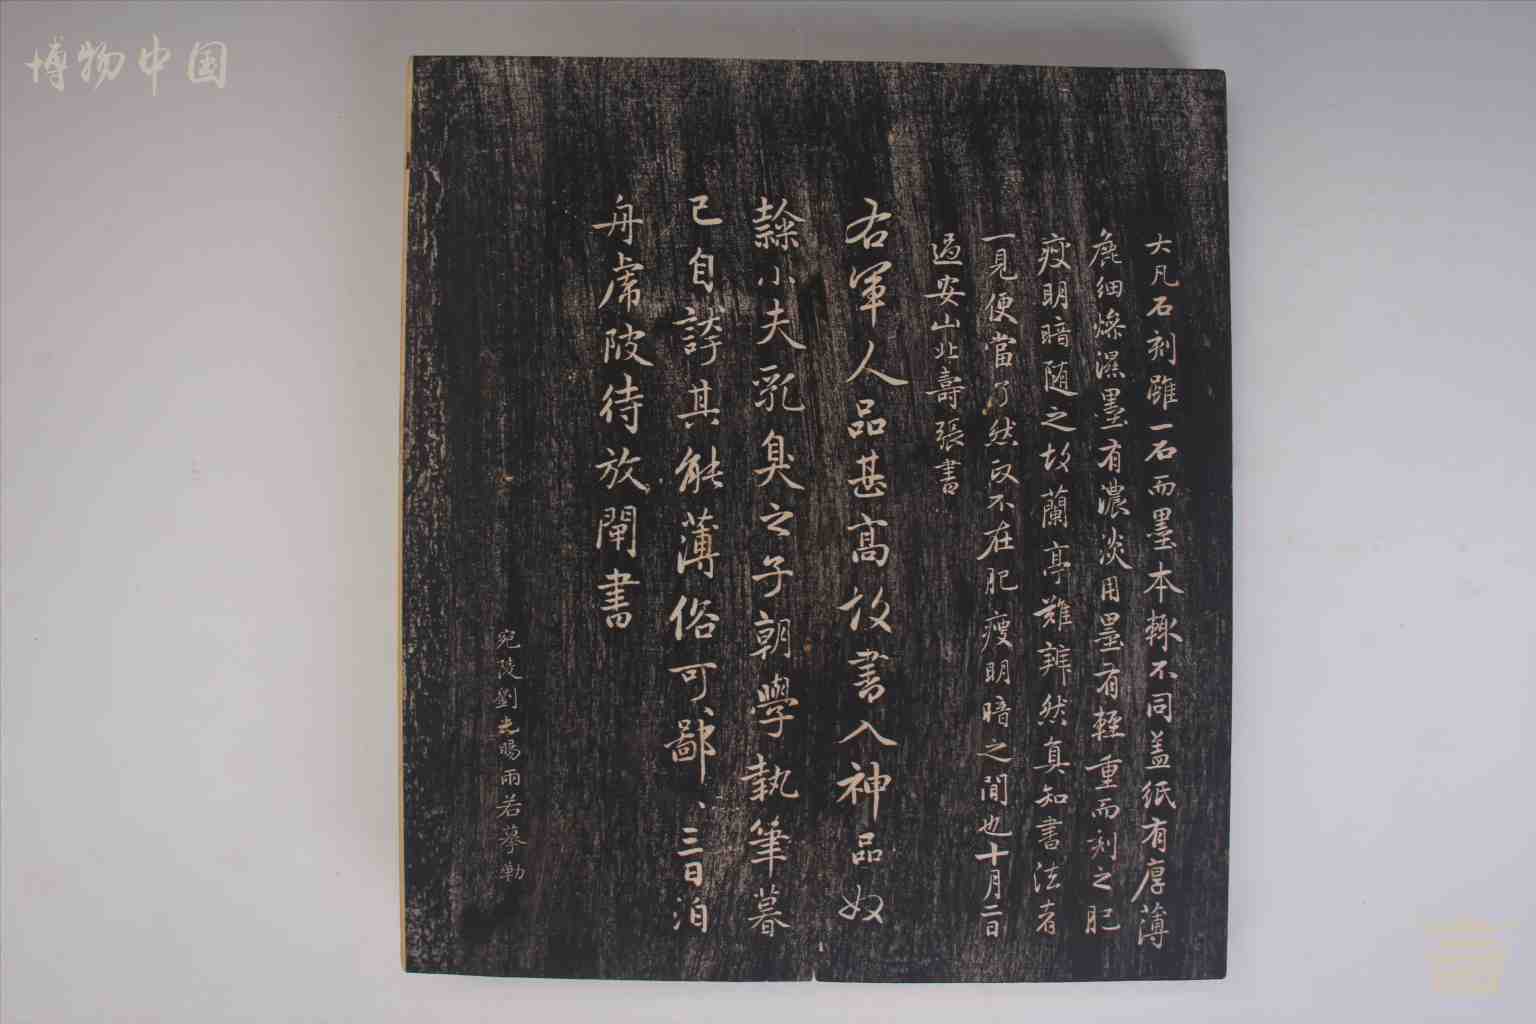 博物中国
大凡石刻雖一石而墨本輙不同盖紙有厚薄
麁細燥濕墨有濃淡用墨有輕重而刻之肥
瘦明暗随之故蘭亭難辨然真知書法者
一見便當了然政不在肥瘦明暗之間也十月二日
過安山北壽張書
右軍人品甚高故書入神品奴
隸小夫乳臭之子朝學執筆暮
已自誇其能薄俗可、鄙、三日泊
舟虎陂待放閘書
宛陵劉光暘雨若摹勒